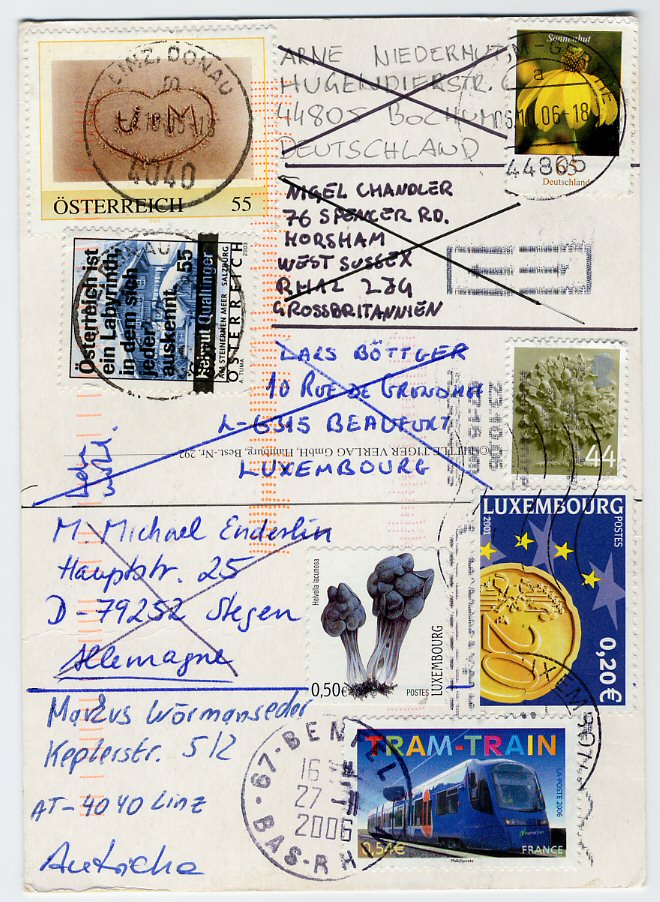 LINZ, DONAU
U M
4040
ÖSTERREICH 55
ARNE NIEDERHUT
HUGENDIERSTR. 6
44805 BOCHUM
DEUTSCHLAND
Sonnenhut
a
06-18
44805
65
Deutschland
NIGEL CHANDLER
76 SPENCER RD.
HORSHAM
WEST SUSSEX
GROSSBRITANNIEN
Österreich ist
ein Labyrinth,
in dem sich
jeder
auskennt.
Helmut Qualtinger
55
AM STEINERNEN MEER SALZBURG
ÖSTERREICH
A. TUMA
LARS BÖTTGER
10 RUE DE GRUNDHOF
L-6315 BEAUFORT
LUXEMBOURG
TIGER VERLAG GmbH, Hamburg, Best.-Nr. 292
44
M. Michael Enderlin
Hauptstr. 25
D-79252 Stegen
Allemagne
LUXEMBOURG
2001
POSTES
20
0,20€
Helvella lacunosa
0,50€
POSTES
LUXEMBOURG
Markus Wörmanseder
Keplerstr. 5/2
AT-4040 Linz
Autriche
67-BENF
16
27
2006
BAS-RH
TRAM-TRAIN
LA POSTE 2006
0,54€
FRANCE